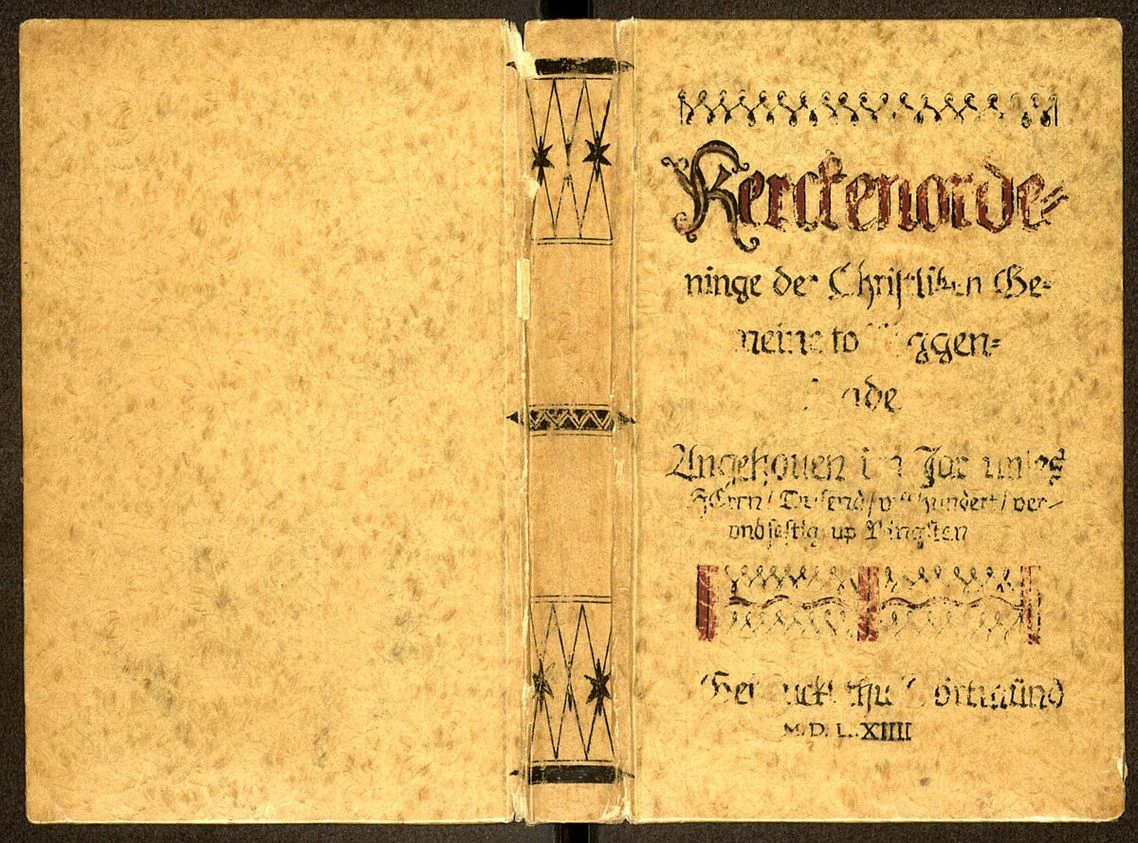 Kerckenorde⸗
ninge der Christliken Ge⸗
meine to ggen⸗
ade
Angehouen im Jar unses
HErrn / Dusend / vyffhundert / ver⸗
undsestig up Pingsten
Gedruckt thu Dortmünd
M. D. LXIIII